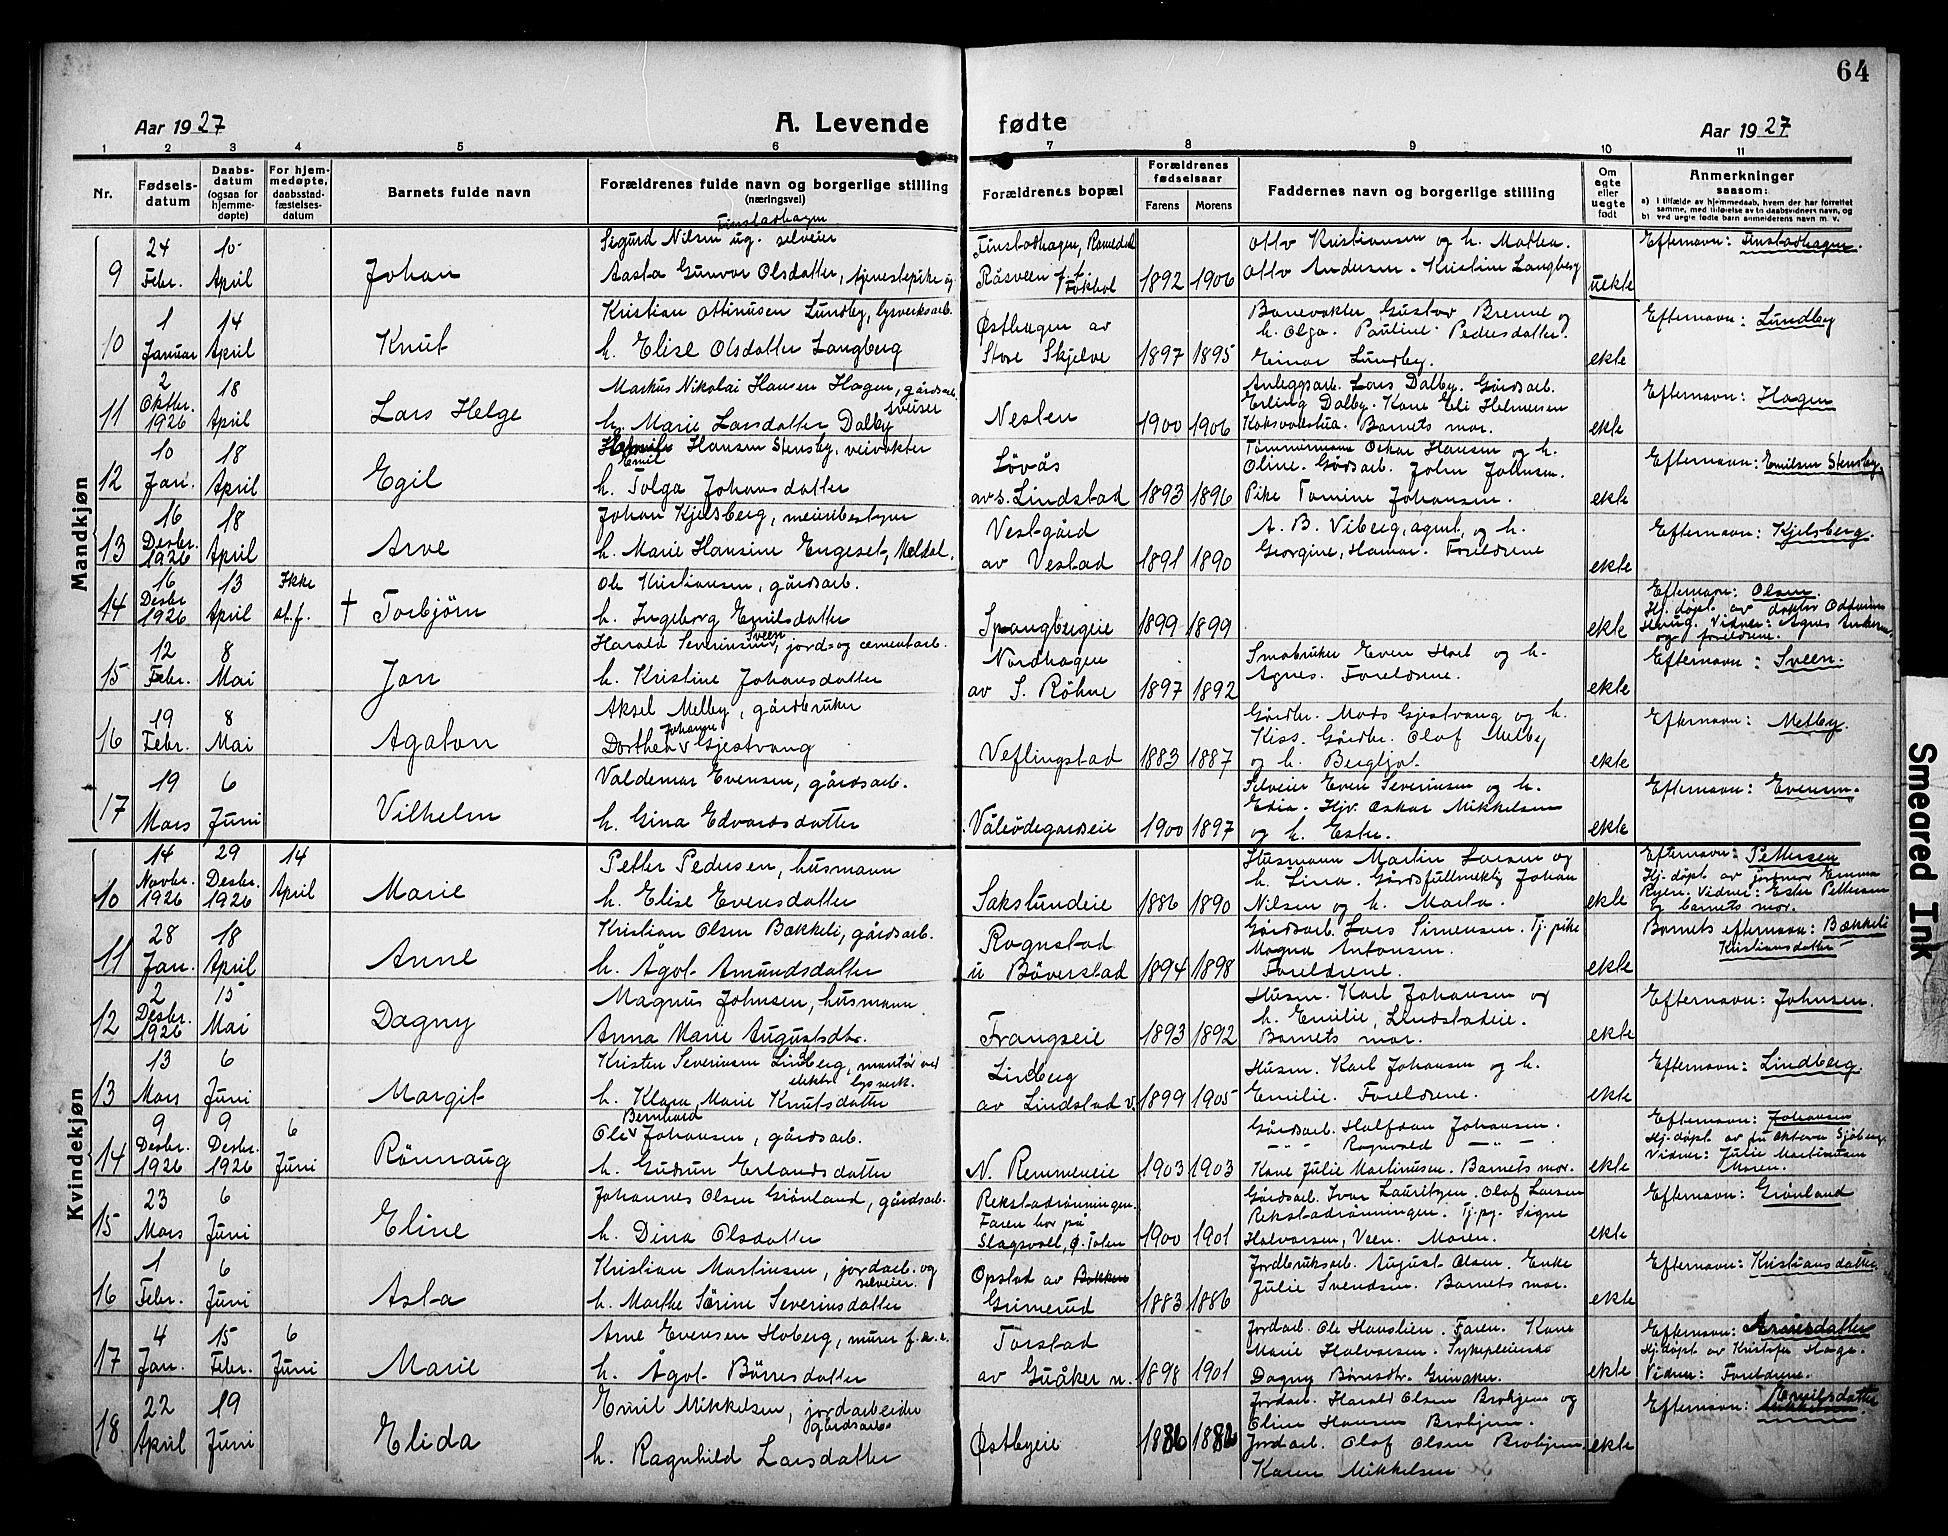 64
Aar 1927
A. Levende fødte
Aar 1927
1 2 3 4 5 6 7 8 9 10 11
Nr.
Fødsels-
datum
Daabs-
datum
(ogsaa for
hjemme-
døpte)
For hjem-
medøpte,
daabsstad-
fæstelses-
datum
Barnets fulde navn
Forældrenes fulde navn og borgerlige stilling
(næringsvei)
Forældrenes bopæl
Forældrenes
fødselsaar
Farens Morens
Faddernes navn og borgerlige stilling
Om
egte
eller
uegte
født
Anmerkninger
saasom:
a) I tilfælde av hjemmedaab, hvem der har forrettet
samme, med tilføielse av to daabsvidners navn, og
b) ved uegte fødte barn anmelderens navn m. v.
Mandkjøn
9
24 Febr.
10 April
Johan
Finstadhagen
Sigurd Nilsen ug. selveier
Aasta Gunvor Olsdatter, tjenestepike ug.
Finstadhagen, Romedal
Råsveen
1892 1906
Otto Kristiansen og h. Mathea.
Otto Andersen. Kristine Langberg
uekte
Efternavn: Finstadhagen.
10
1 Januar
14 April
Knut
Kristian Ottinusen Lundby, lysverksarb.
h. Elise Olsdatter Langberg
Østhagen av
Store Skjelve
1897 1895
Banevokter Gustav Brenne og
h. Olga. Pauline Pedersdatter.
Einar Lundby.
ekte
Efternavn: Lundby
11
2 Oktbr. 1926
18 April
Lars Helge
Markus Nikolai Hansen Hagen, gårdsarb.
sveiser
h. Marie Larsdatter Dalby
Nesten
1900 1906
Anleggsarb. Lars Dalby. Gårdsarb.
Erling Dalby. Kone Eli Helmensen
Koksvoldstua. Barnets mor.
ekte
Efternavn: Hagen
12
10 Jan.
18 April
Egil
Emil Hansen Stensby, veivokter
h. Tolga Johansdatter
Løvås
av s. Lindstad
1893 1896
Tømmermann Oskar Hansen og h.
Oline. Gårdsarb. John Johnsen.
Pike Tomine Johansen.
ekte
Efternavn: Emilsen Stensby.
13
16 Desbr. 1926
18 April
Arve
Johan Kjelsberg, meieribestyrer
h. Marie Hansine Engeset, Meldal.
Vestgård
av Vestad
1891 1890
A. B. Viberg, agent, og h.
Georgine, Hamar. Foreldrene
ekte
Efternavn: Kjelsberg.
14
16 Desbr. 1926
13 April
Ikke st.f.
† Torbjørn
Ole Kristiansen, gårdsarb.
h. Ingeborg Emilsdatter
Spangbergeie
1899 1899
ekte
Efternavn: Olsen.
Hj. døpt av doktor
Vidner: Agnes
og foreldrene.
15
12 Febr.
8 Mai
Jan
Harald Severinsen Sveen, jord- og cementarb.
h. Kristine Johansdatter
Nordhagen
av S. Røhne
1897 1892
Småbruker Even Hoel og h.
Agnes. Foreldrene.
ekte
Efternavn: Sveen.
16
19 Febr.
8 Mai
Agaton
Aksel Melby, gårdbruker
Dorthea Johanne Gjestvang
Veflingstad
1883 1887
Gårdbr. Mads Gjestvang og h.
Kiss. Gårdbr. Olaf Melby
og h. Bergljot.
ekte
Efternavn: Melby.
17
19 Mars
6 Juni
Vilhelm
Valdemar Evensen, gårdsarb.
h. Gina Edvardsdatter
Våleødegardseie
1900 1897
Selveier Even Severinsen og h.
Edia. Hjv. Oskar Mikkelsen
og h. Ester.
ekte
Efternavn: Evensen.
Kvindekjøn
10
14 Novbr. 1926
29 Desbr. 1926
14 April
Marie
Petter Pedersen, husmann
h. Elise Evensdatter
Sakslundeie
1886 1890
Husmann Martin Larsen og
h. Lina. Gårdsfullmektig Johan
Nilsen og h. Marta.
ekte
Efternavn: Pettersen
Hj. døpt av jormor Emma
Ryen. Vidner: Ester Pettersen
og barnets mor.
11
28 Jan.
18 April
Anne
Kristian Olsen Bækkeli, gårdsarb.
h. Ågot Amundsdatter
Rognstad
u Bøverstad
1894 1898
Gårdsarb. Lars Simensen. Tj.pike
Magna Antonsen.
Foreldrene.
ekte
Barnets efternavn: Bækkeli
Kristiansdatter
12
2 Desbr. 1926
15 Mai
Dagny
Magnus Johnsen, husmann
Anna Marie Augustsdtr.
Frangseie
1893 1892
Husm. Karl Johansen og
h. Emilie, Lindstadeie.
Barnets mor.
ekte
Efternavn: Johnsen.
13
13 Mars
6 Juni
Margit
Kristen Severinsen Lindberg, montør ved
elektr. lysverk.
h. Klara Marie Knutsdatter
Lindberg
av Lindstad v.
1899 1905
Husm. Karl Johansen og h.
Emilie. Foreldrene.
ekte
Efternavn: Lindberg.
14
9 Desbr. 1926
9 Desbr. 1926
6 Juni
Rønnaug
Ole Bernhard Johansen, gårdsarb.
h. Gudrun Erlandsdatter
N. Remmeneie
1903 1903
Gårdsarb. Halfdan Johansen.
-"- Ragnvald -"- -"-
Kone Julie Martinusen. Barnets mor.
ekte
Efternavn: Johansen
Hj.døpt av fru Oktava Sjøberg.
Vidner: Julie Martinusen
Moren.
15
23 Mars
6 Juni
Eline
Johannes Olsen Grønland, gårdsarb.
h. Dina Olsdatter
Rekstadrønningen.
Faren bor på
Slagsvoll, Ø. Toten
1900 1901
Gårdsarb. Ivar Lauritzen. Olaf Larsen
Rekstadrønningen. Tj.p. Signe
Halvorsen, Veen. Moren.
ekte
Efternavn: Grønland
16
1 Febr.
6 Juni
Asta
Kristian Martinsen, jordarb. og
selveier.
h. Marthe Sørine Severinsdatter
Opstad av Bakken
Grimerud
1883 1886
Jordbruksarb. August Olsen. Enke
Julie Svendsen. Barnets mor.
ekte
Efternavn: Kristiansdatter
17
4 Jan.
15 Febr.
6 Juni
Marie
Arne Evensen Hoberg, murer f. a. e.
h. Ågot Børresdatter
Torstad
av Guåker n.
1898 1901
Jordarb. Ole Hanslien. Faren. Kone
Marie Halvorsen. Sykepleierske
Dagny Børresdtr. Guåker.
ekte
Efternavn: Arnesdatter
Hj.døpt av Kristofer Hage.
Vidner: Foreldrene.
18
22 April
19 Juni
Elida
Emil Mikkelsen, jordarbeider
h. Ragnhild Larsdatter
Østbyeie
1886 1882
Jordarb. Harald Olsen Brohjem og
Eline Hansen Brohjem.
Jordarb. Olaf Olsen Brohjem.
Karen Mikkelsen
ekte
Efternavn: Emilsdatter
Mikkelsen
Smeared Ink